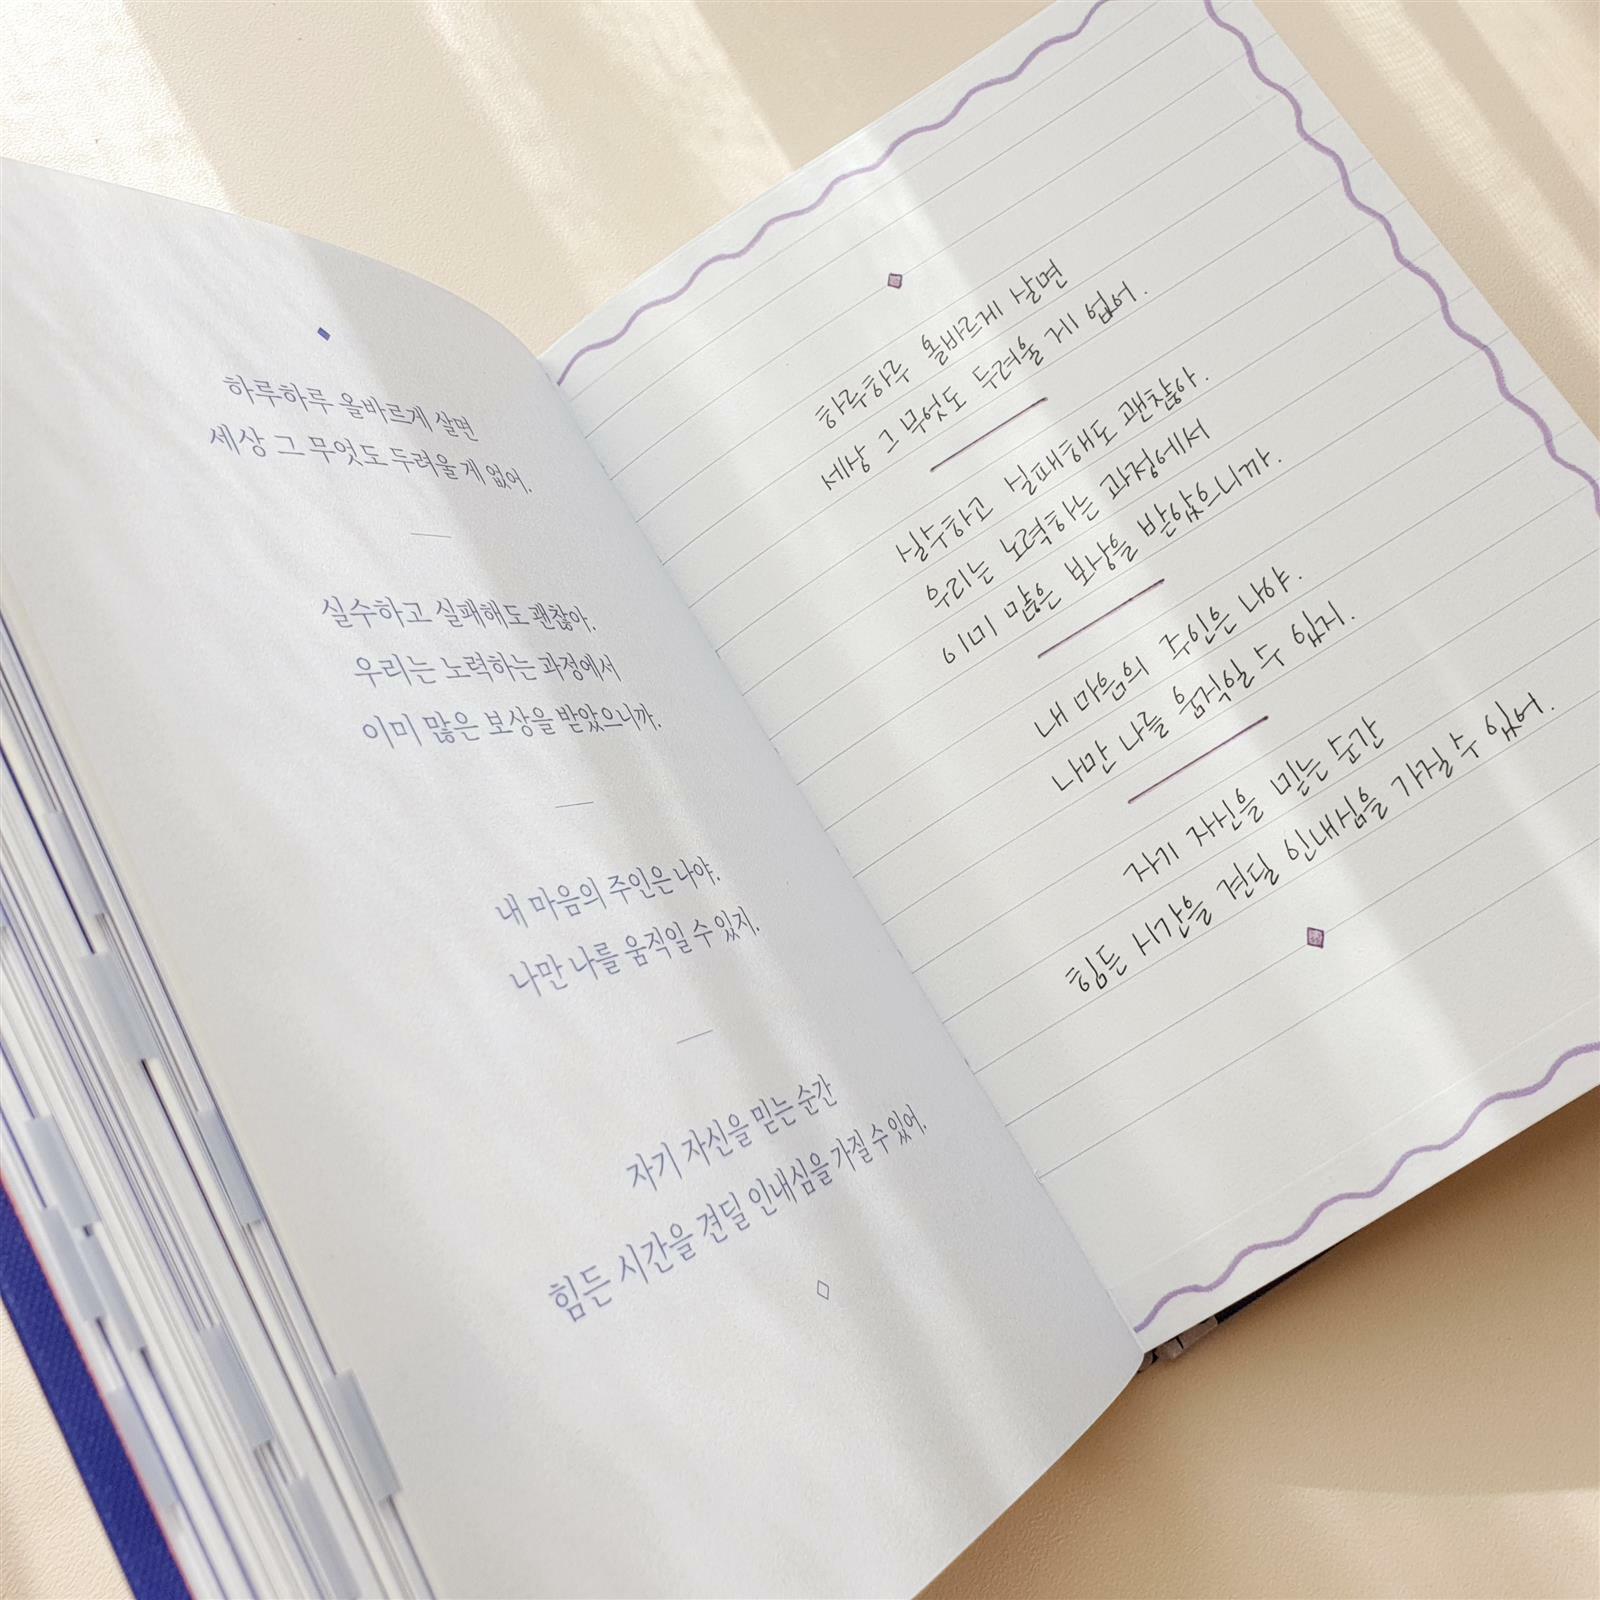 하루하루 올바르게 살면
세상 그 무엇도 두려울 게 없어.
실수하고 실패해도 괜찮아.
우리는 노력하는 과정에서
이미 많은 보상을 받았으니까.
내 마음의 주인은 나야.
나만 나를 움직일 수 있지.
자기 자신을 믿는 순간
힘든 시간을 견딜 인내심을 가질 수 있어.
하루하루 올바르게 살면
세상 그 무엇도 두려울 게 없어.
실수하고 실패해도 괜찮아.
우리는 노력하는 과정에서
이미 많은 보상을 받았으니까.
내 마음의 주인은 나야.
나만 나를 움직일 수 있지.
자기 자신을 믿는 순간
힘든 시간을 견딜 인내심을 가질 수 있어.